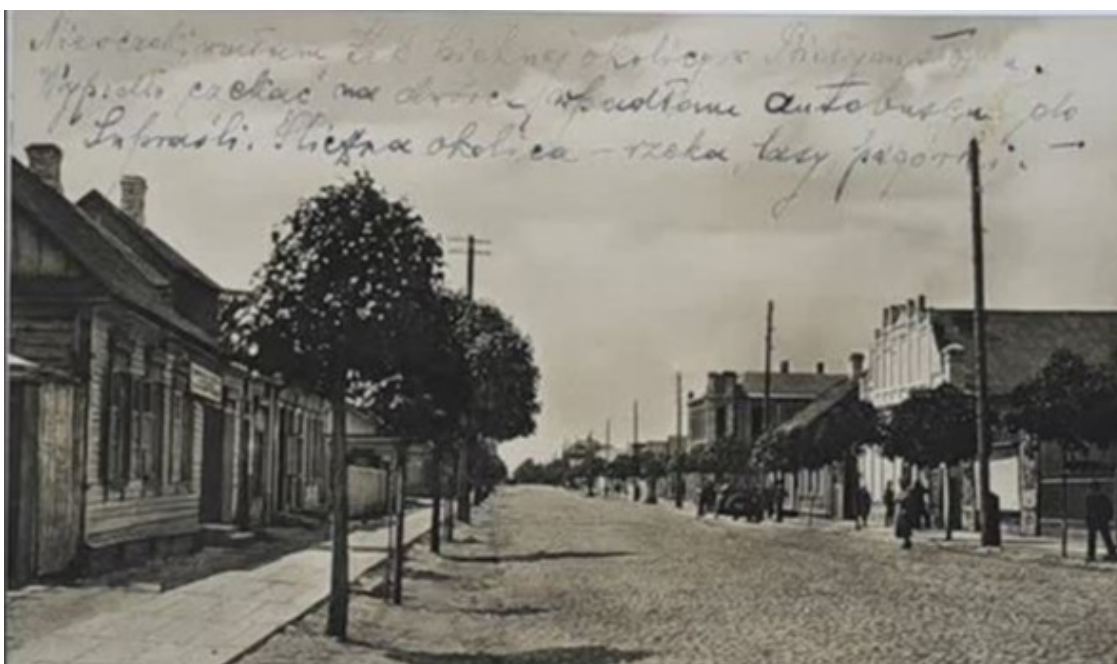 Nieoczekiwałam tak pięknej okolicy
Wypadło czekać na dworcu, wpadłam autobusem do
Supraśli. Śliczna okolica – rzeka, lasy pagórki. –